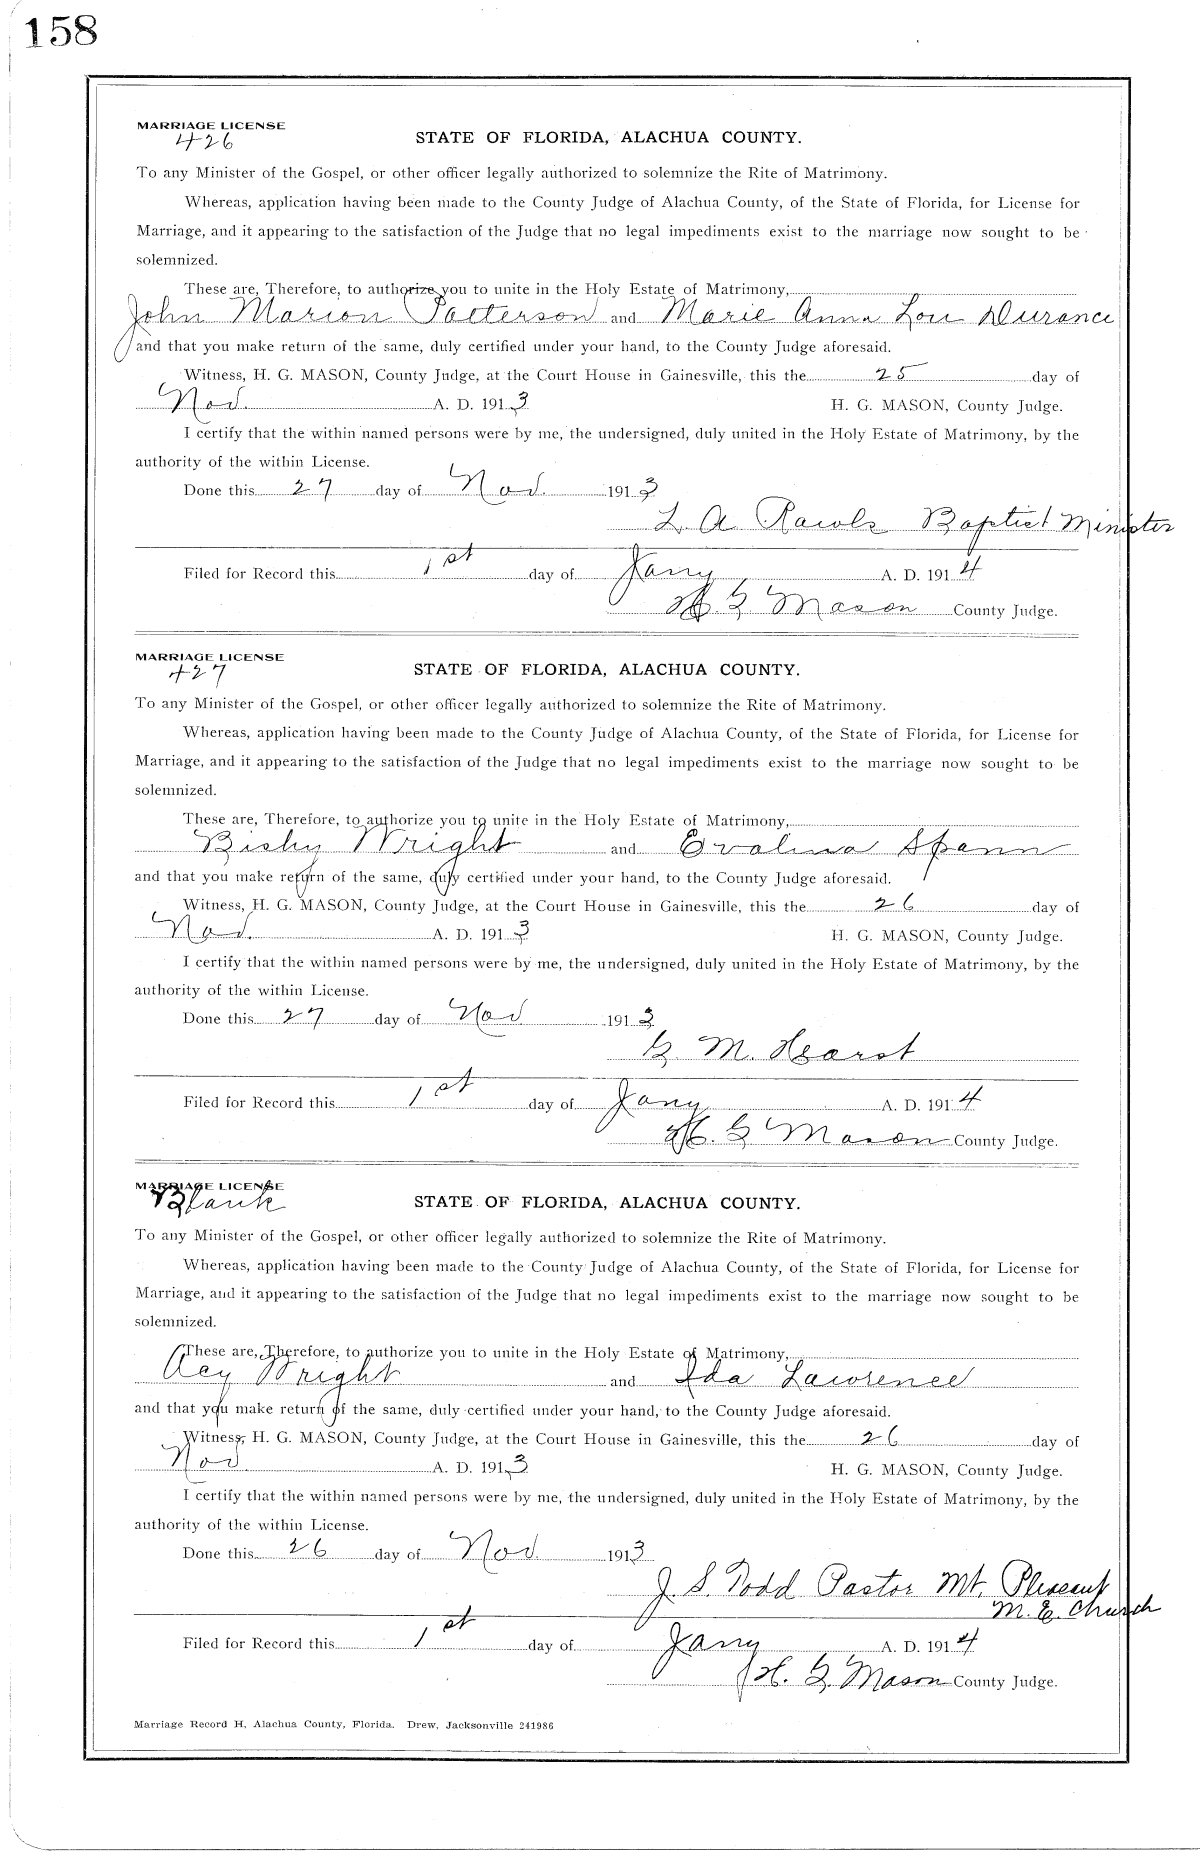 158
MARRIAGE LICENSE
426
STATE OF FLORIDA, ALACHUA COUNTY.
To any Minister of the Gospel, or other officer legally authorized to solemnize the Rite of Matrimony.
Whereas, application having been made to the County Judge of Alachua County, of the State of Florida, for License for
Marriage, and it appearing to the satisfaction of the Judge that no legal impediments exist to the marriage now sought to be
solemnized.
These are, Therefore, to authorize you to unite in the Holy Estate of Matrimony,
John Marion Patterson and Marie Anna Lou Durance
and that you make return of the same, duly certified under your hand, to the County Judge aforesaid.
Witness, H. G. MASON, County Judge, at the Court House in Gainesville, this the 25 day of
Nov. A. D. 1913 H. G. MASON, County Judge.
I certify that the within named persons were by me, the undersigned, duly united in the Holy Estate of Matrimony, by the
authority of the within License.
Done this 27 day of Nov. 1913
L A Rawls Baptist Minister
Filed for Record this 1st day of Jany A. D. 1914
H. G Mason County Judge.
MARRIAGE LICENSE
427
STATE OF FLORIDA, ALACHUA COUNTY.
To any Minister of the Gospel, or other officer legally authorized to solemnize the Rite of Matrimony.
Whereas, application having been made to the County Judge of Alachua County, of the State of Florida, for License for
Marriage, and it appearing to the satisfaction of the Judge that no legal impediments exist to the marriage now sought to be
solemnized.
These are, Therefore, to authorize you to unite in the Holy Estate of Matrimony,
Wright and Evalina Spann
and that you make return of the same, duly certified under your hand, to the County Judge aforesaid.
Witness, H. G. MASON, County Judge, at the Court House in Gainesville, this the 26 day of
Nov. A. D. 1913 H. G. MASON, County Judge.
I certify that the within named persons were by me, the undersigned, duly united in the Holy Estate of Matrimony, by the
authority of the within License.
Done this 27 day of Nov 1913
G. M. Hearst
Filed for Record this 1st day of Jany A. D. 1914
H. G Mason County Judge.
MARRIAGE LICENSE
Blank
STATE OF FLORIDA, ALACHUA COUNTY.
To any Minister of the Gospel, or other officer legally authorized to solemnize the Rite of Matrimony.
Whereas, application having been made to the County Judge of Alachua County, of the State of Florida, for License for
Marriage, and it appearing to the satisfaction of the Judge that no legal impediments exist to the marriage now sought to be
solemnized.
These are, Therefore, to authorize you to unite in the Holy Estate of Matrimony,
Acy Wright and Ida Lawrence
and that you make return of the same, duly certified under your hand, to the County Judge aforesaid.
Witness, H. G. MASON, County Judge, at the Court House in Gainesville, this the 26 day of
Nov A. D. 1913 H. G. MASON, County Judge.
I certify that the within named persons were by me, the undersigned, duly united in the Holy Estate of Matrimony, by the
authority of the within License.
Done this 26 day of Nov. 1913
J. S. Todd Pastor Mt. Pleasant
M. E. Church
Filed for Record this 1st day of Jany A. D. 1914
H. G. Mason County Judge.
Marriage Record H, Alachua County, Florida. Drew, Jacksonville 241986